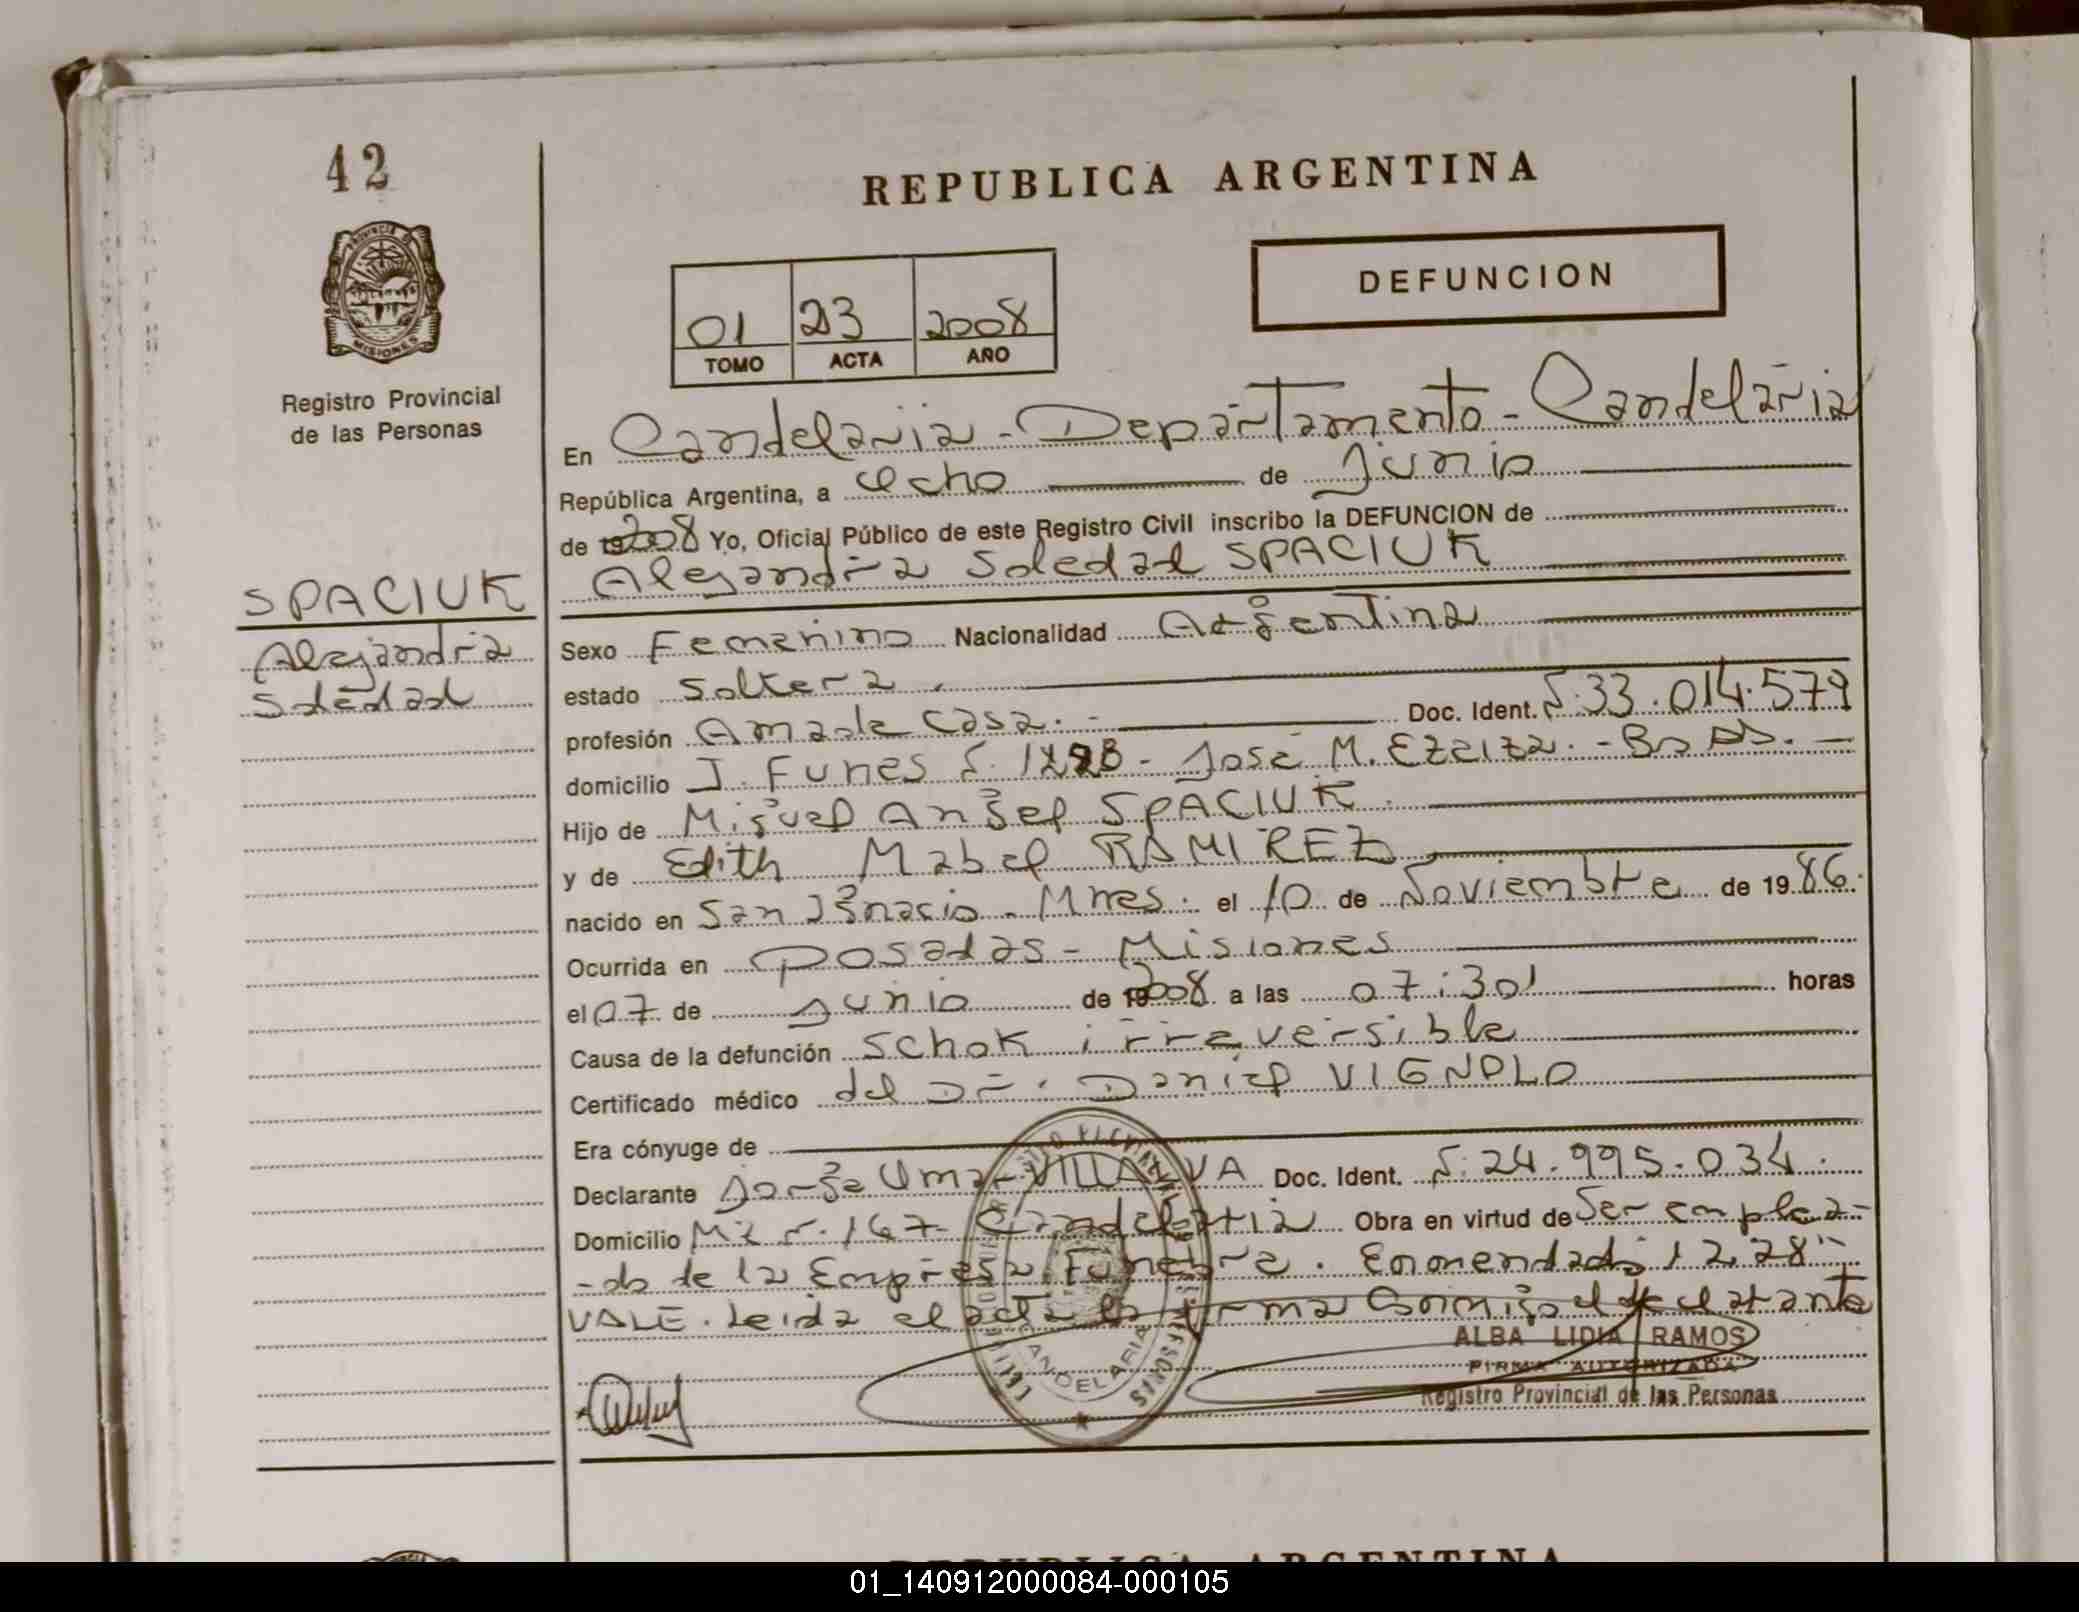 42
REPUBLICA ARGENTINA
PROVINCIA DE
MISIONES
Registro Provincial
de las Personas
DEFUNCION
01 23 2008
TOMO ACTA AÑO
En Candelaria - Departamento - Candelaria
República Argentina, a ocho de Junio
de 2008 Yo, Oficial Público de este Registro Civil inscribo la DEFUNCION de
Alejandra Soledad SPACIUK
SPACIUK
Alejandra
Soledad
Sexo Femenino Nacionalidad Argentina
estado Soltera.
profesión Ama de casa.- Doc. Ident. N. 33.014.579
domicilio J. Funes N. 1228 - José M. Ezeiza. - Bs As. -
Hijo de Miguel Angel SPACIUK.
y de Edith Mabel RAMIREZ
nacido en San Ignacio - Mnes. el 10 de Noviembre de 1986.
Ocurrida en Posadas - Misiones
el 07 de Junio de 2008. a las 07:30' horas
Causa de la defunción Schok irreversible
Certificado médico del Dr. Daniel VIGNOLO
Era cónyuge de
Declarante Jorge Omar VILLALVA Doc. Ident. N. 24.995.034.
Domicilio Mz N. 167 Candelaria Obra en virtud de Ser emplea-
-do de la Empresa Funebre. Enmendado 1228"
VALE. Leida el acta la firma conmigo el declarante
CANDELARIA
ALBA LIDIA RAMOS
FIRMA AUTORIZADA
Registro Provincial de las Personas
REPUBLICA ARGENTINA
01_140912000084-000105